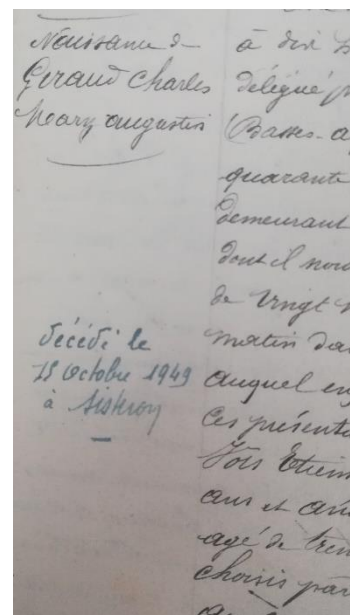 Naissance de
Giraud Charles
Mary Augustin
décédé le
15 Octobre 1949
à Sisteron
à dix h
délégué p
(Basses-a
quarante
demeurant
dont il nou
de vingt
matin da
auquel en
ces présent
Fois Etien
ans et
agé de tren
choisis par